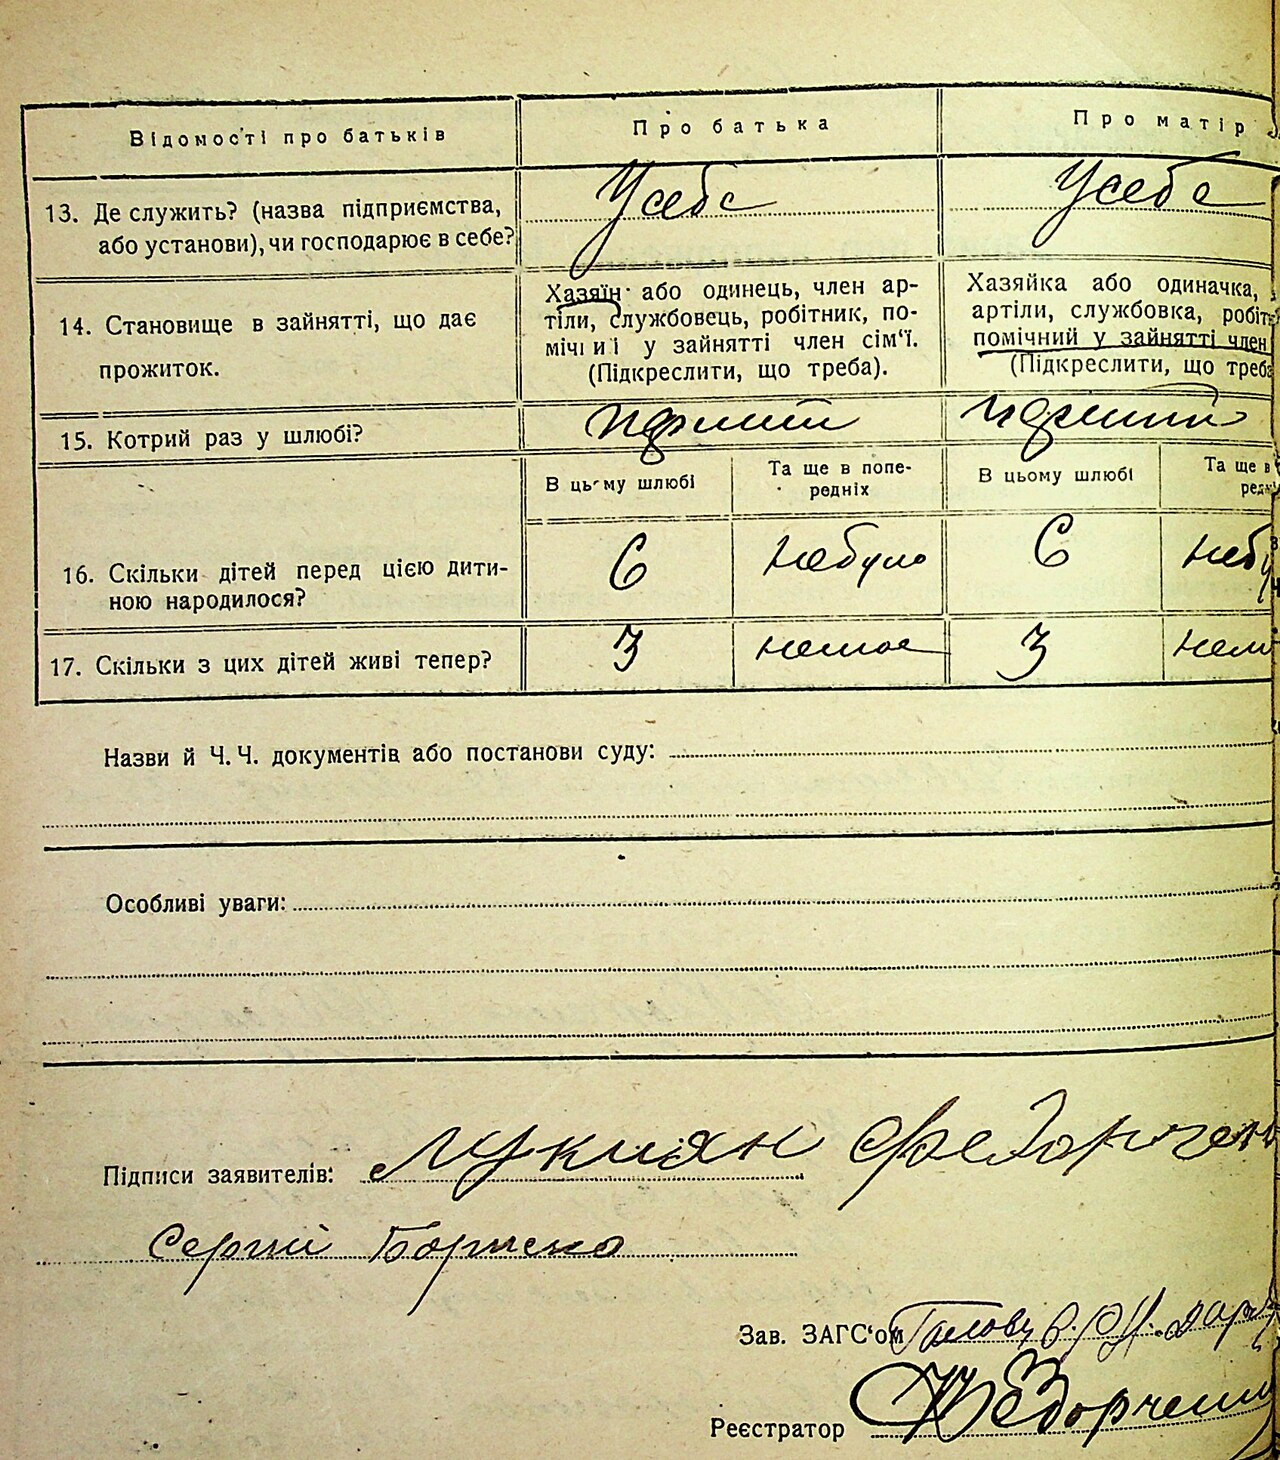 Відомості про батьків
Про батька
Про матір
13. Де служить? (назва підприємства,
або установи), чи господарює в себе?
Усебе
Усебе
14. Становище в зайнятті, що дає
прожиток.
Хазяїн або одинець, член ар-
тіли, службовець, робітник, по-
мічний у зайнятті член сім'ї.
(Підкреслити, що треба).
Хазяйка або одиначка,
артіли, службовка, робіт
помічний у зайнятті член
(Підкреслити, що треба
15. Котрий раз у шлюбі?
перший
перший
В цьому шлюбі
Та ще в попе-
редніх
В цьому шлюбі
Та ще в
ред
16. Скільки дітей перед цією дити-
ною народилося?
6
небуло
6
небу
17. Скільки з цих дітей живі тепер?
3
немає
3
нем
Назви й Ч. Ч. документів або постанови суду:
Особливі уваги:
Підписи заявителів: Лукиян Федорчен
Сергій Бориско
Зав. ЗАГС'ом Голова С.
Реєстратор Федорченко